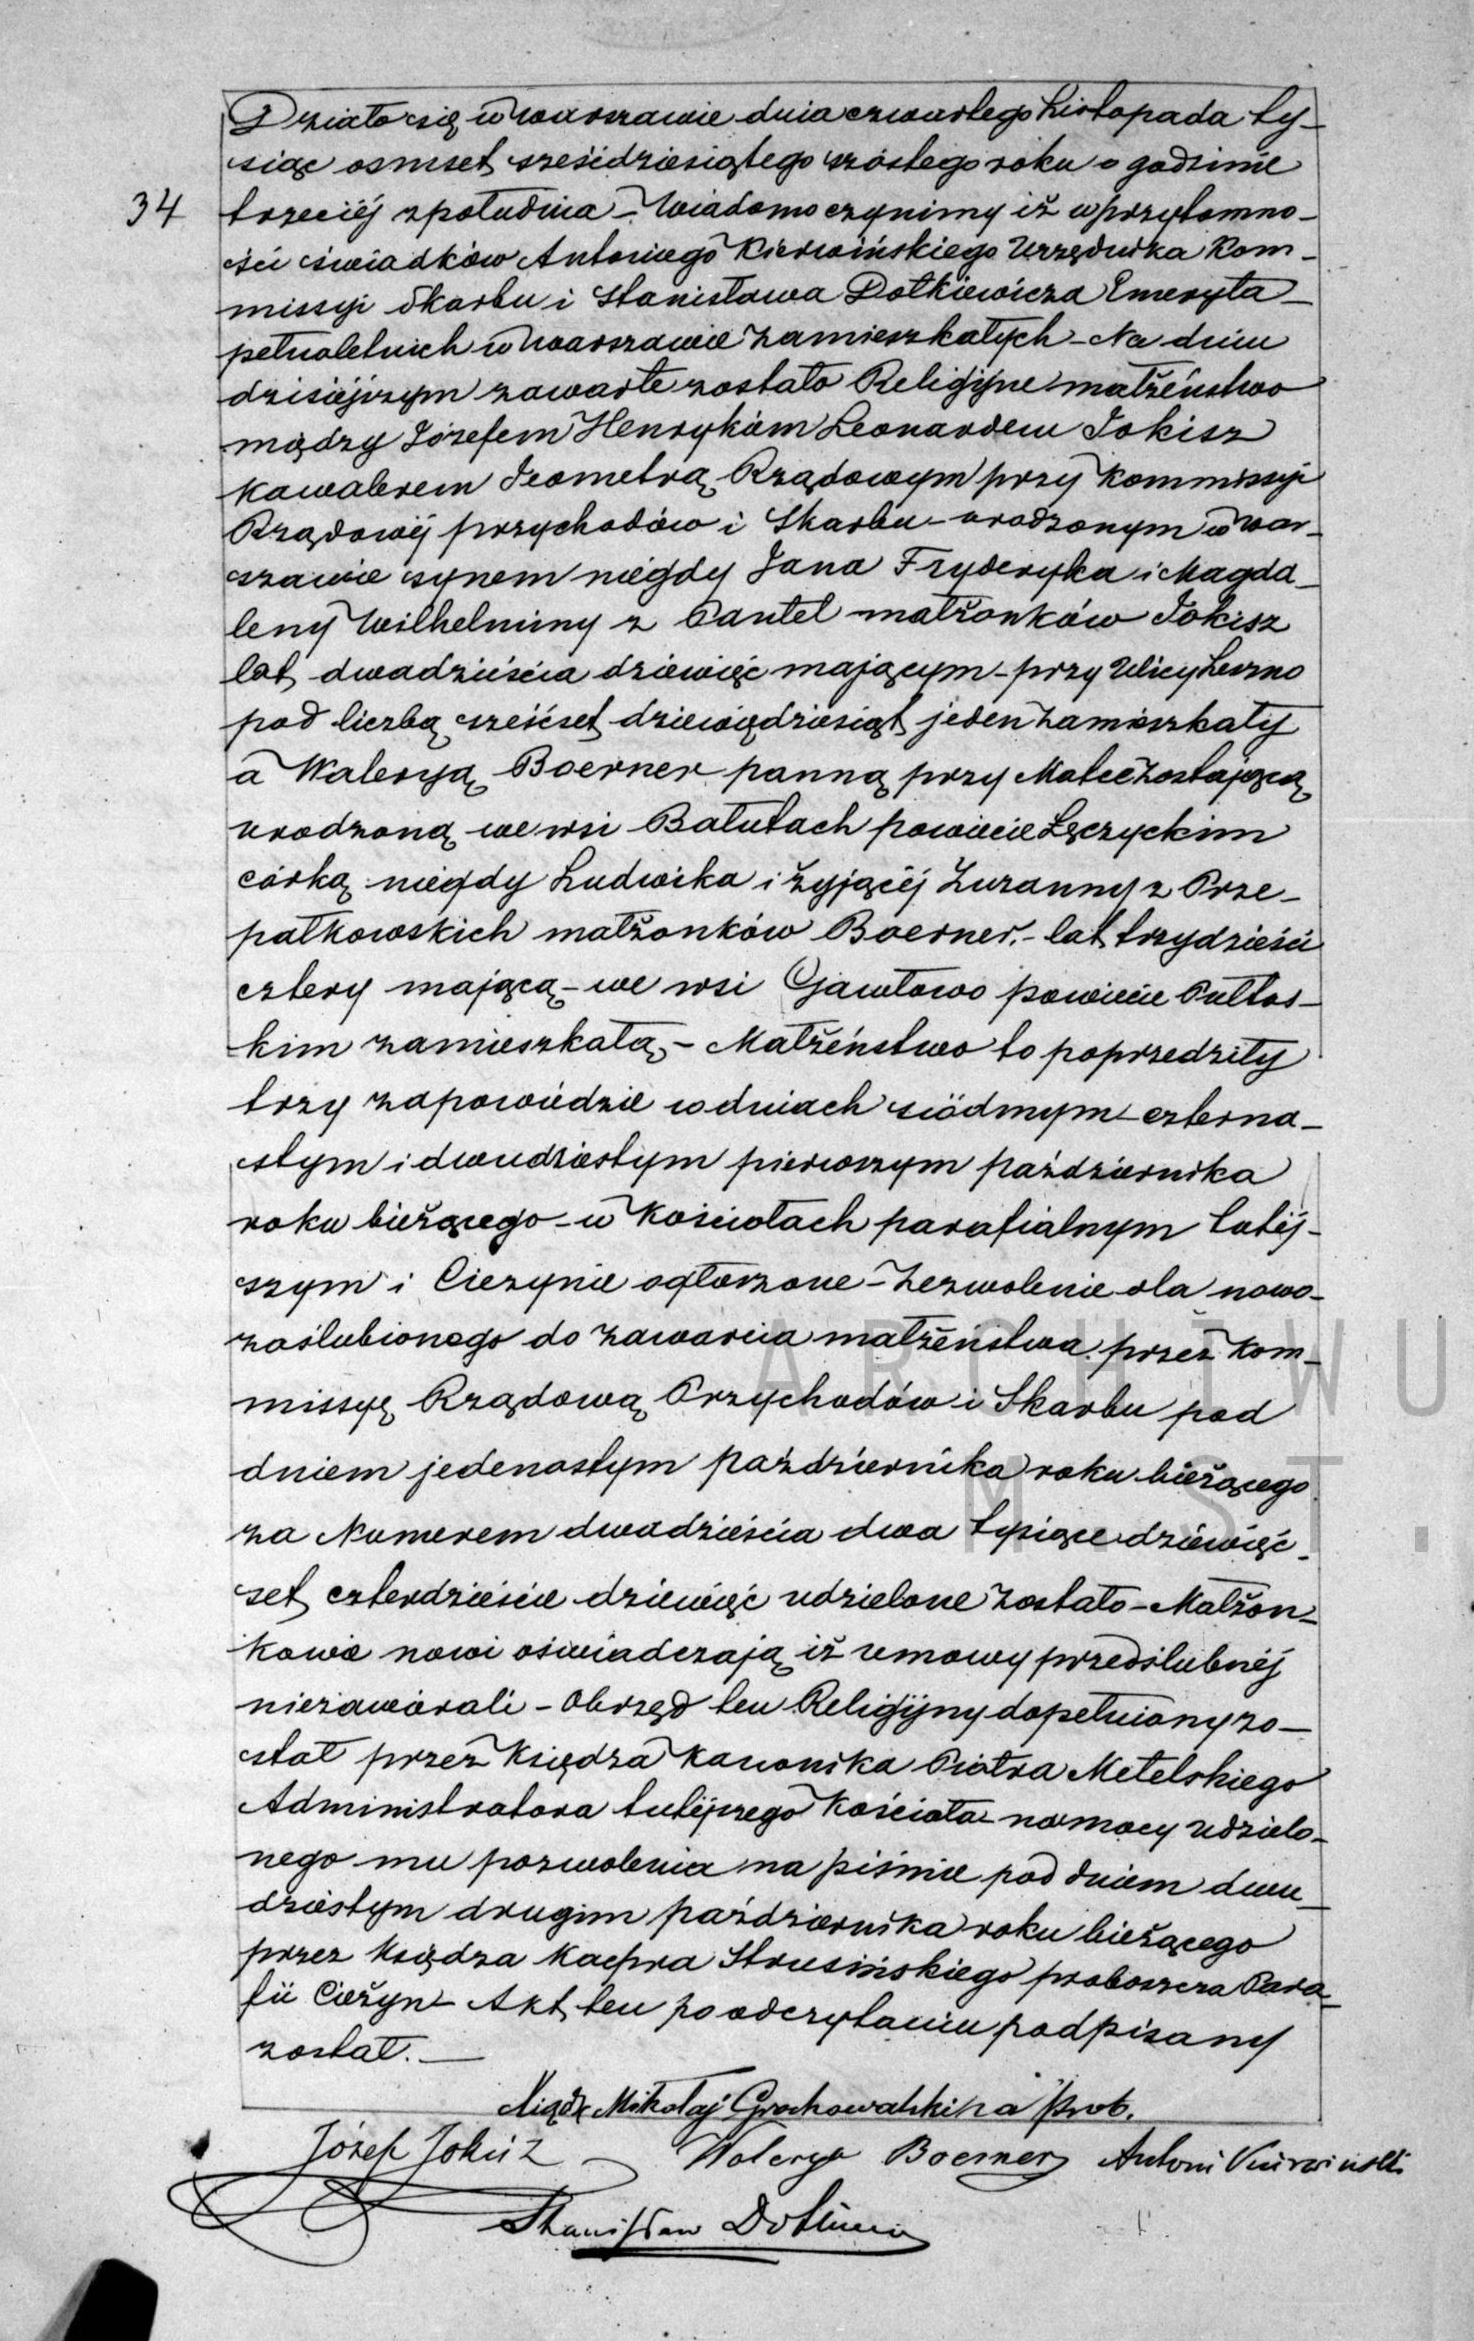 Działo się w Warszawie dnia czwartego Listopada ty-
siąc osmset sześćdziesiątego szóstego roku o godzinie
34 trzeciéj z południa – Wiadomo czynimy iż w przytomno-
ści świadków Antoniego Kierwińskiego Urzędnika Kom-
missyi Skarbu i Stanisława Dotkiewicza Emeryta –
pełnoletnich w Warszawie zamieszkałych – Na dniu
dzisiéjszym zawarte zostało Religijne małżeństwo
między Józefem Henrykiem Leonardem Jokisz
kawalerem Jeometrą Rządowym przy Kommissyi
Rządowéj przychodów i Skarbu – urodzonym w War-
szawie synem niegdy Jana Fryderyka i Magda-
leny Wilhelminy z Pantel małżonków Jokisz
lat dwadzieścia dziewięć mającym – przy Ulicy Leszno
pod liczbą sześćset dziewiędziesiąt jeden zamieszkały
a Waleryą Boerner panną przy Matce zostającą
urodzoną we wsi Bałutach powiecie Łęczyckim
córką niegdy Ludwika i żyjącéj Zuzanny z Prze-
pałkowskich małżonków Boerner. – lat trzydzieści
cztery mającą – we wsi Gawłowo powiecie Pułtus-
kim zamieszkałą. – Małżeństwo to poprzedziły
trzy zapowiedzie w dniach siódmym czterna-
stym i dwudziestym pierwszym października
roku bieżącego – w Kościołach parafialnym tutéj-
szym i Ciezynie ogłoszone – Zezwolenie dla nowo-
zaślubionego do zawarcia małżeństwa przez Kom-
missyę Rządową Przychodów i Skarbu pod
dniem jedenastym października roku bieżącego
za Numerem dwadzieścia dwa tysiące dziewięć-
set czterdzieście dziewięć udzielone zostało – Małżon-
kowie nowi oświadczają iż umowy przedślubnéj
niezawierali – Obrzęd ten Religijny dopełniony zo-
stał przez Księdza Kanonika Piotra Metelskiego
Administratora tutéjszego Kościoła na mocy udzielo-
nego mu pozwolenia na piśmie pod dniem dwu-
dziestym drugim października roku bieżącego
przez Księdza Kacpra Strusińskiego proboszcza Para-
fii Ciežyn – Akt ten po odczytaniu podpisany
został. –
Ksiądz Mikołaj Prob.
Józef Jokisz Walerya Boerner Antoni Kierwiński
Stanisław
ARCHIWU
M ST.